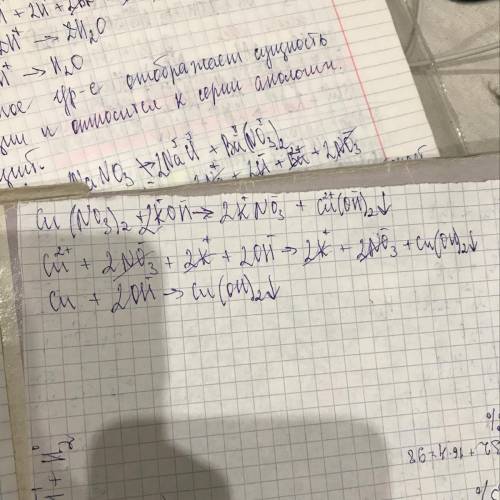 2H⁺ → 2H₂O
H⁺ → H₂O
ур-е отображает сущность
и относится к серии аналогич.
NaNO₃ + Ba(NO₃)₂
Cu(NO₃)₂ + 2K⁺OH⁻ → 2K⁺NO₃⁻ + Cu²⁺(OH)⁻₂↓
Cu²⁺ + 2NO₃⁻ + 2K⁺ + 2OH⁻ → 2K⁺ + 2NO₃⁻ + Cu(OH)₂↓
Cu + 2OH⁻ → Cu(OH)₂↓
32 + 16·4 = 98